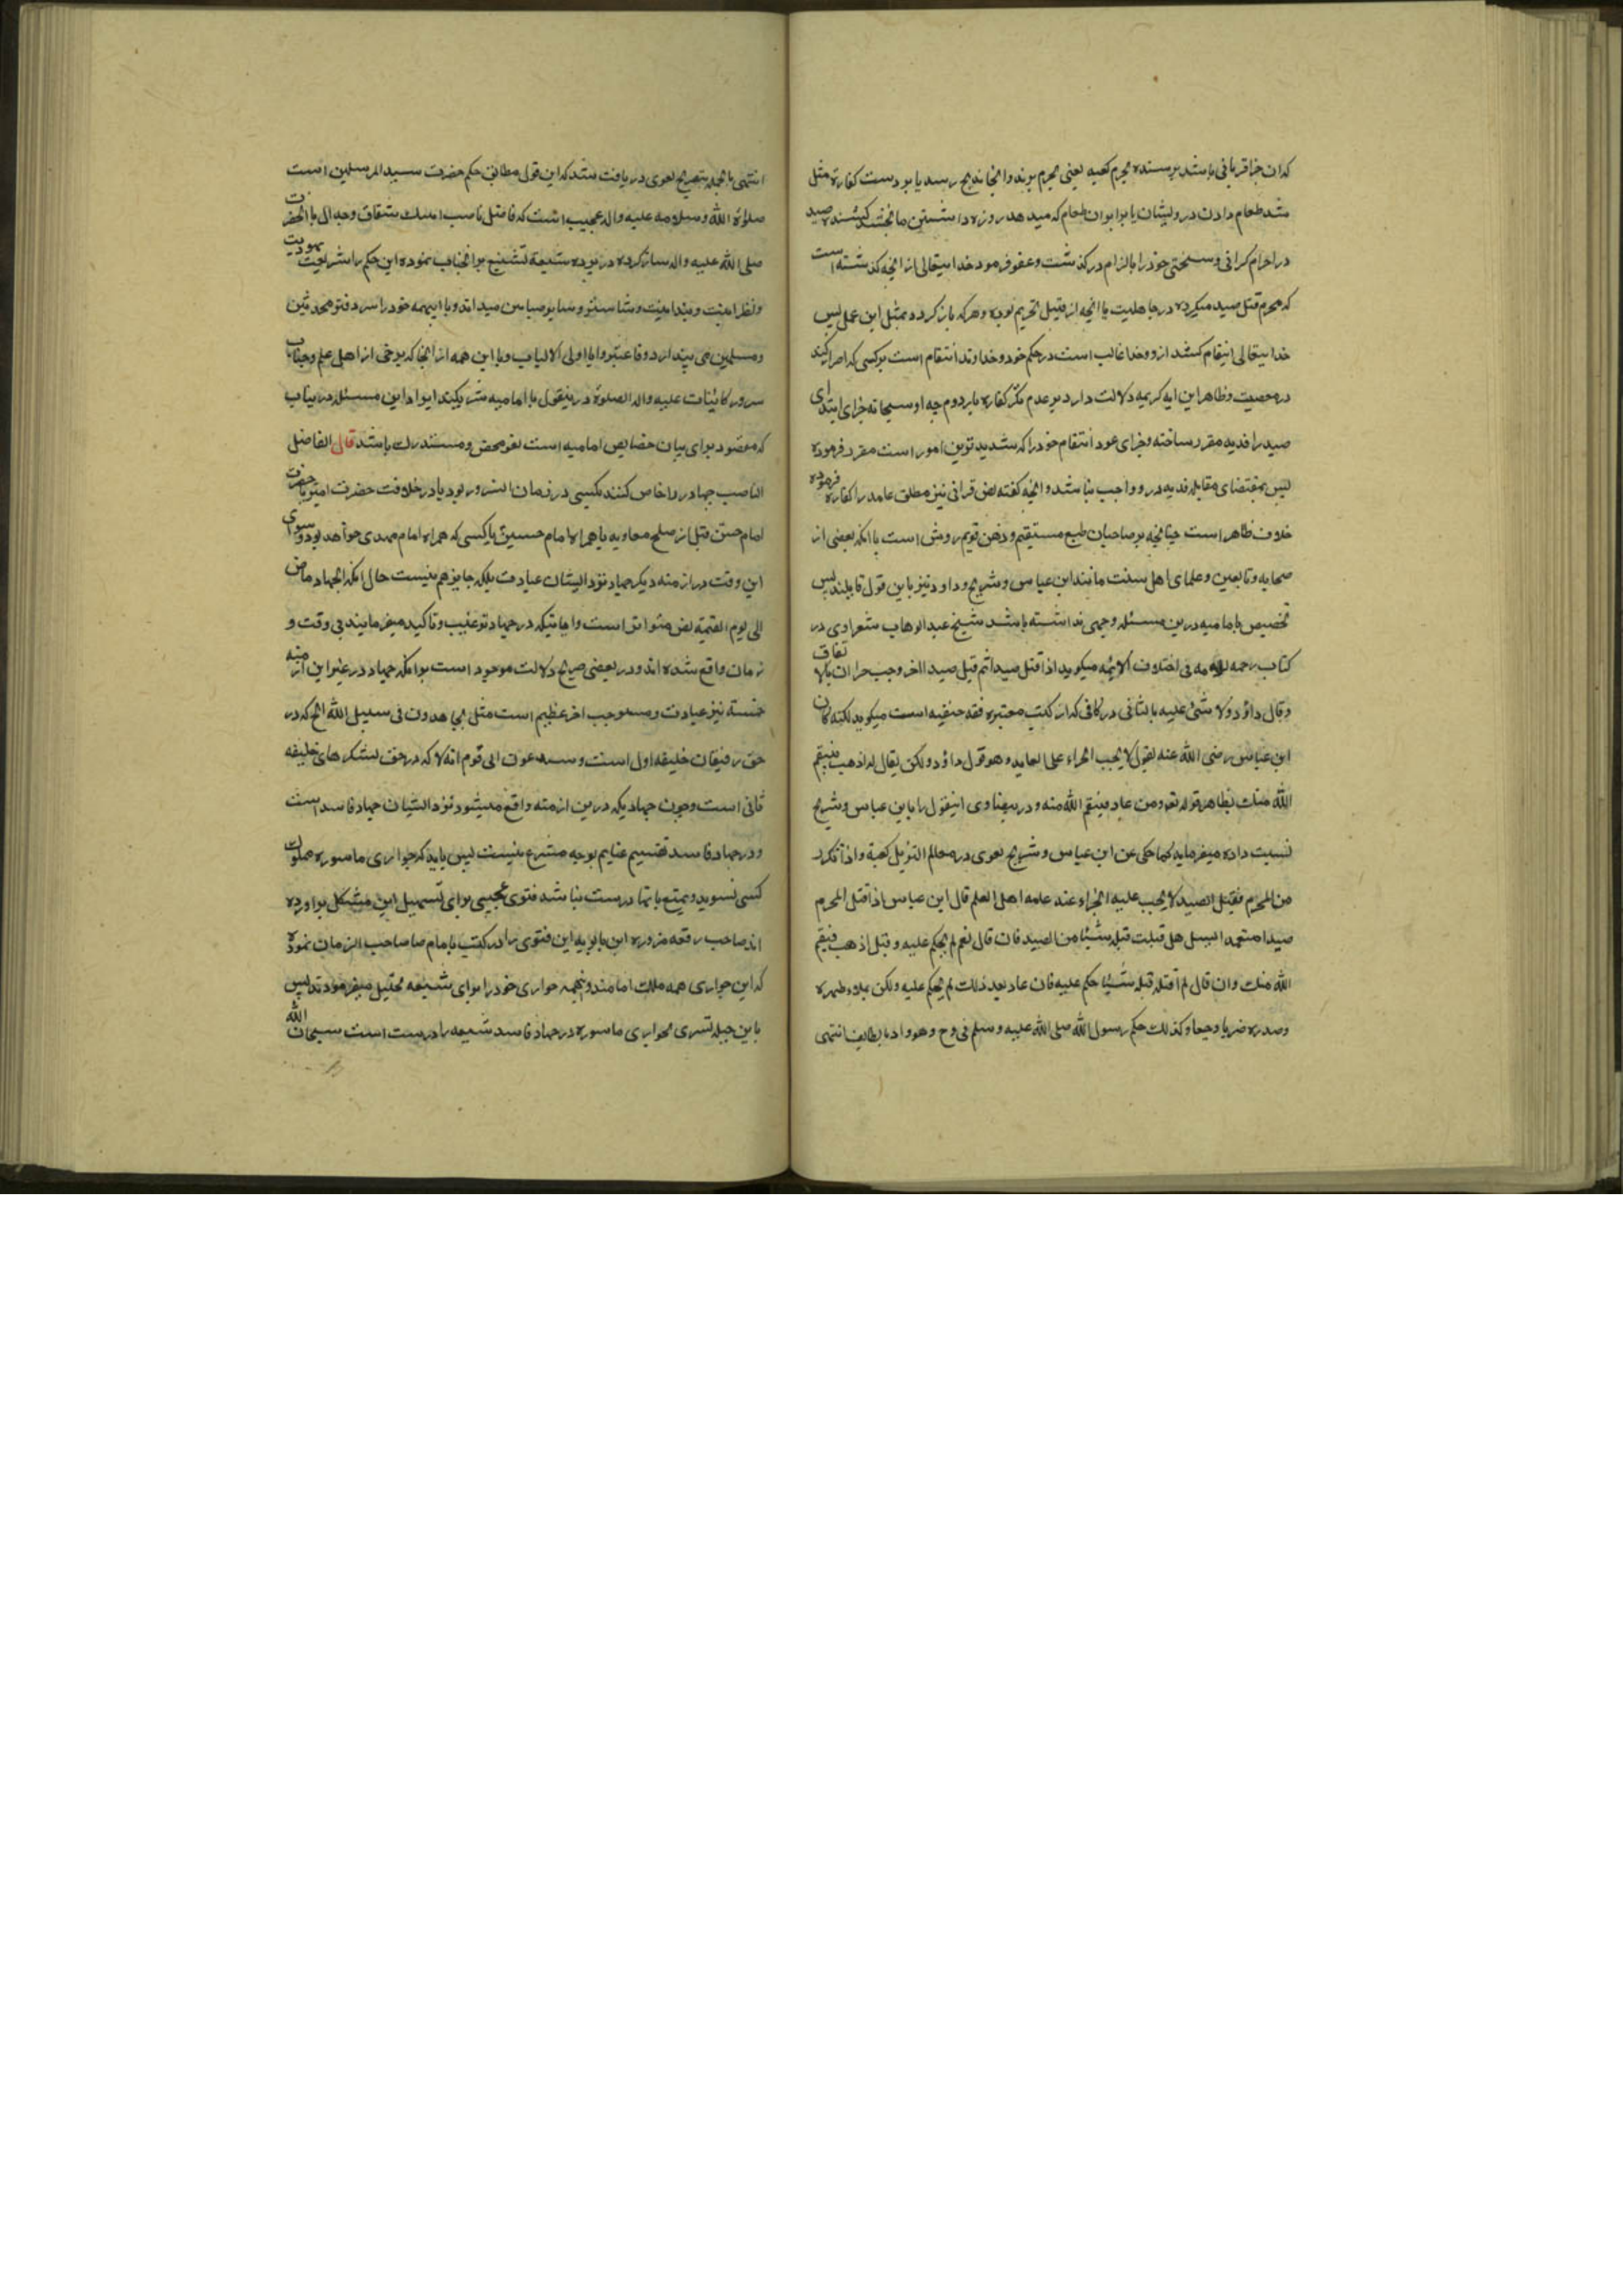 که ان جزا قربانی باشد برسنده بحرم کعبه یعنی بحرم برند و انجا ذبح رسد یا بر دست کفارة مثل
شد طعام دادن درویشان یا برابر ان طعام که میدهد روزه داشتن ما بخشد کشنده صید
در احرام کرانی و سختی خود را بالزام درکذشت و عفو فرمود خدایتعالی از انچه کذشته است
که محرم قتل صید میکرده در جاهلیت یا انچه از قبل تحریم بوده و هرکه باز کردد بمثل این عمل پس
خدایتعالی انتقام کشد ازو و خدا غالب است در حکم خود و خداوند انتقام است برکسی که اصرار کند
در معصیت و ظاهر این ایه کریمه دلالت دارد بر عدم تکرر کفاره بار دوم چه او سبحانه جزای ابتدای
صید را فدیه مقرر ساخته و جزای عود انتقام خود را که شدیدترین امور است مقرر فرموده
پس بمقتضای مقابله فدیه درو واجب نباشد و انچه کفته نص قرانی نیز مطلق عامد را کفاره فرموده
خلاف ظاهر است چنانچه بر صاحبان طبع مستقیم و ذهن قویم روشن است با انکه بعضی از
صحابه و تابعین و علمای اهل سنت مانند ابن عباس و شریح و داود نیز باین قول قایلند پس
تخصیص بامامیه درین مسئله وجهی نداشته باشد شیخ عبد الوهاب شعراوی در
کتاب رحمه الامه فی اختلاف الائمه میکوید اذا قتل صیدا ثم قتل صیدا اخر وجب جزاان بالاتفاق
و قال داؤد ولا شئ علیه بالثانی در کافی که از کتب معتبره فقه حنفیه است میکوید لکنه کان
ابن عباس رضی الله عنه یقول لا یجب الجزاء علی العاید و هو قول داؤد ولکن یقال له اذهب فینتقم
الله منک بظاهر قوله تعم ومن عاد فینتقم الله منه و در بیضاوی اینقول را بابن عباس و شریح
نسبت داده میفرماید کما حکی عن ابن عباس و شریح بغوی در معالم التنزیل کفته و اذا تکرر
من المحرم فقتل الصید لا یجب علیه الجزاء عند عامه اهل العلم قال ابن عباس اذا قتل المحرم
صیدا متعمدا یسئل هل قتلت قبله شیئا من الصید فان قال نعم لم یحکم علیه و قیل اذهب فینتقم
الله منک وان قال لم اقتله قبله شیئا حکم علیه فان عاد بعد ذلک لم یحکم علیه ولکن یملاء ظهره
وصدره ضربا وجیعا وکذلک حکم رسول الله صلی الله علیه وسلم فی وج وهو واد بالطایف انتهی
انتهی بالجمله بتصریح بغوی دریافت شد که این قول مطابق حکم حضرت سید المرسلین است
صلوة الله و سلامه علیه واله عجیب است که فاضل ناصب اهنک شقاق و جدال با انحضرت
صلی الله علیه واله ساز کرده در پرده شیعه تشنیع بر انجناب نموده این حکم را شریعت یهودیت
و نصرانیت و و میداند و با اینهمه خود را سردفتر محدثین
و مسلمین می پندارد فاعتبروا یا اولی الالباب و با این همه از انجا که برخی از اهل علم و جناب
سرور کائینات علیه واله الصلوة درینقول بامامیه شریکند ایراد این مسئله درین باب
که معقود برای بیان خصایص امامیه است لغو محض و مستدرک باشد قال الفاضل
الناصب جهاد را خاص کنند بکسی در زمان انسرور بود یا در خلافت حضرت امیر یا حضرت
امام حسن قبل از صلح معاویه یا همراه امام حسین یا کسی که همراه امام مهدی خواهد بود و سوای
این وقت در ازمنه دیکر جهاد نزد ایشان عبادت بلکه جایز هم نیست حال انکه الجهاد ماض
الی یوم القیمة نص متواتر است و ایاتیکه در جهاد ترغیب و تاکید میفرمایند بی وقت و
زمان واقع شده اند و در بعضی صریح دلالت موجود است بر انکه جهاد در غیر این ازمنه
خمسه نیز عبادت و مستوجب اجر عظیم است مثل یجاهدون فی سبیل الله الخ که در
حق رفیقان خلیفه اول است و ستدعون الی قوم الخ که در حق لشکرهای خلیفه
ثانی است و چون جهادیکه درین ازمنه واقع میشود نزد ایشان جهاد فاسد است
و در جهاد فاسد تقسیم غنایم بوجه مشرع نیست پس باید که جواری ماسوره مملوک
کسی نشوید و تمتع بانها درست نباشد فتوی عجیبی برای تسهیل این مشکل براورده
اند صاحب رقعه مزوره ابن بابویه این فتوی را در کتب بامام صاحب الزمان نموده
که این جواری همه ملک امامند و جواری خود را برای شیعه تحلیل میفرمودند پس
باین حیله تسری بجواری ماسوره در جهاد فاسد شیعه را درست است سبحان الله